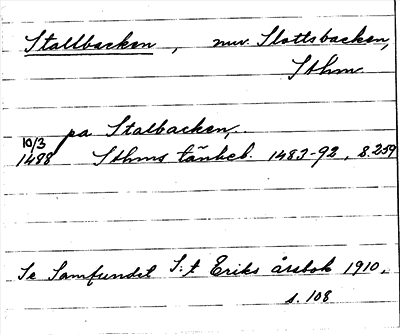 Stallbacken, nuv. Slottsbacken,
Sthm.
10/3 pa Stalbacken,.
1488 Sthms tänkeb. 1483-92, s. 259
Se Samfundet S:t Eriks årsbok 1910,
s. 108